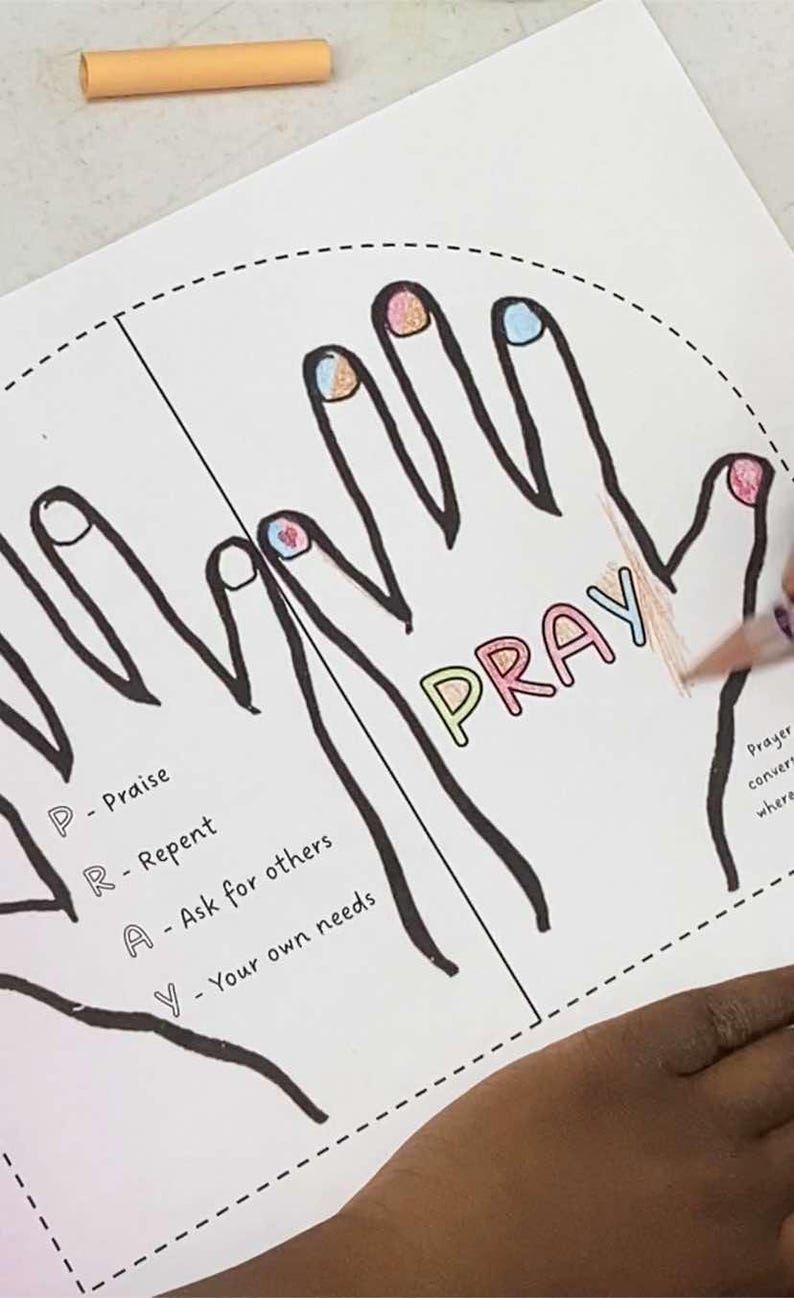 P - Praise
R - Repent
A - Ask for others
Y - Your own needs
PRAY
Prayer
where